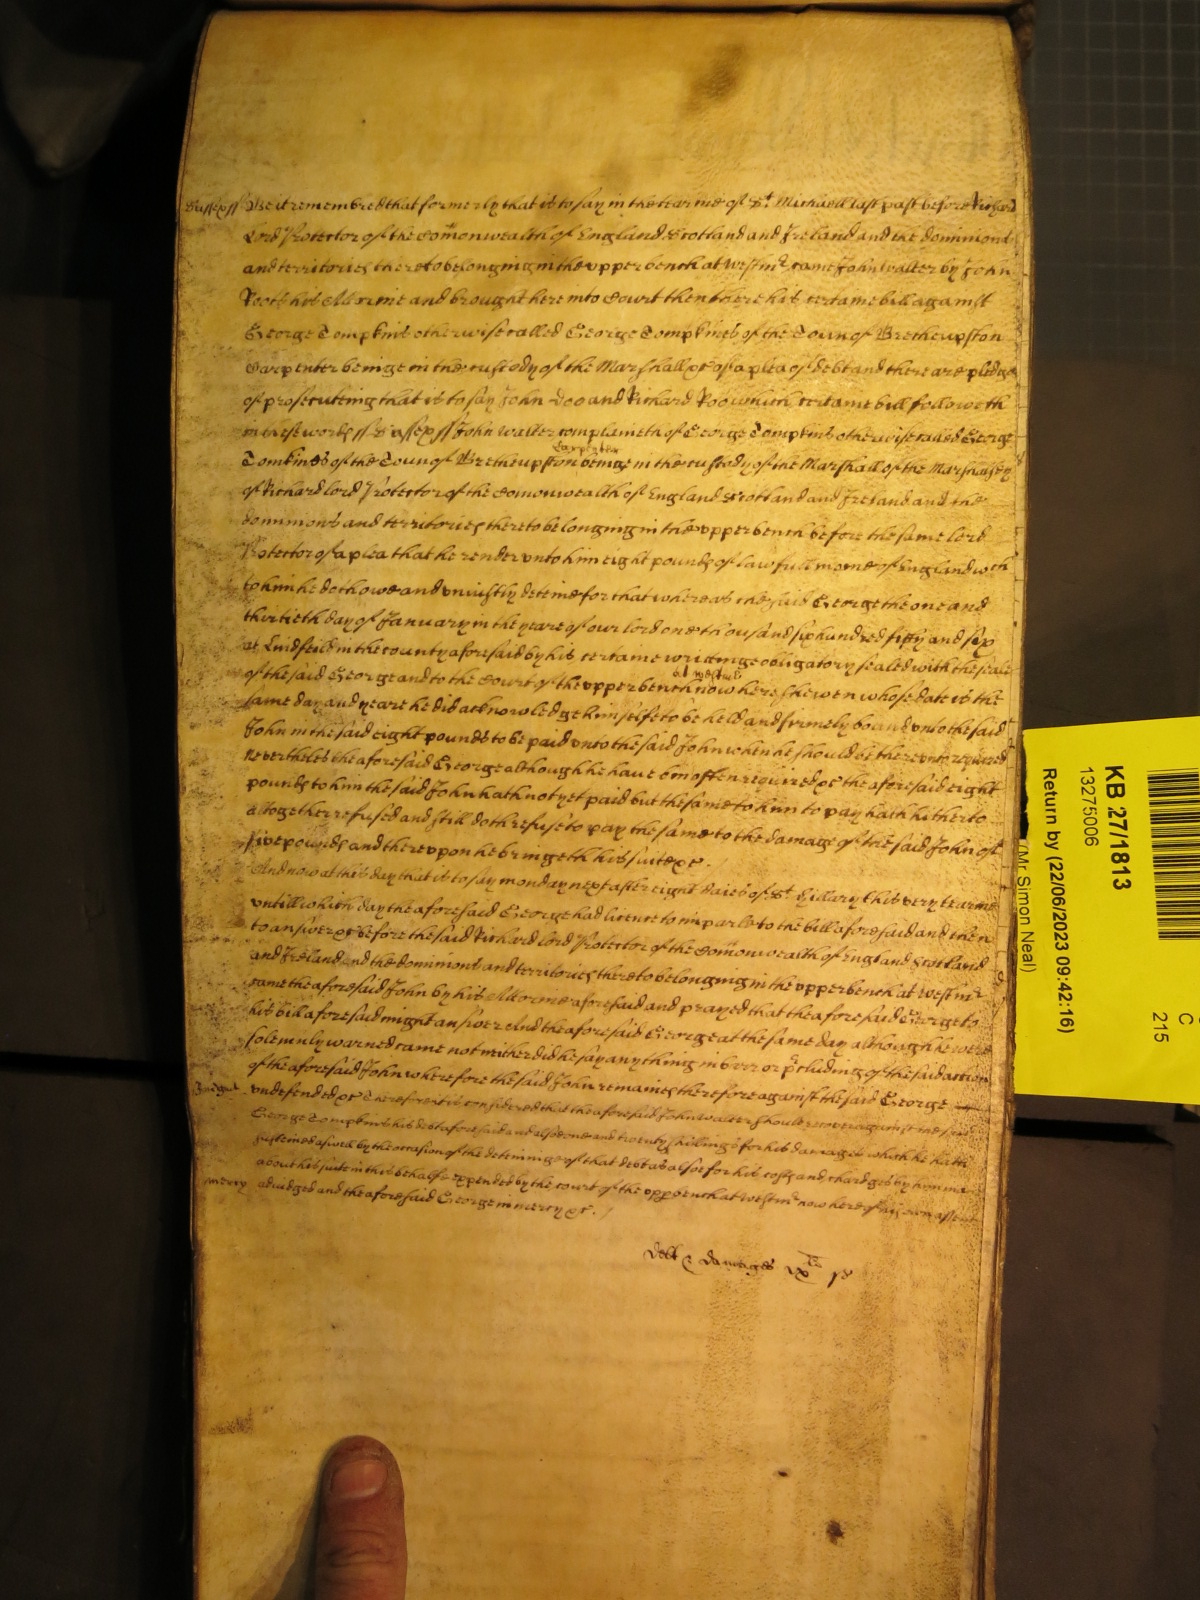 Sussex ss Be it remembred that formerly that is to say in the tearme of St Michaell last past before Richard
Lord Protector of the Comonwealth of England Scotland and Ireland and the dominions
and territories thereto belonging in the upper bench at Westmr came John Walter by John
his Attornie and brought here into Court then there his certaine bill against
George Tompkins otherwise called George Tompkines of the Toun of
Carpenter beinge in the custody of the Marshall &c of a plea of debt and there are pledges
of prosecuteing that is to say John Doo and Richard Roo which certaine bill followeth
in these words ss Sussex ss John Walter complaineth of George Tompkins otherwise called George
Carpenter
Tomkines of the Toun of beinge in the custody of the Marshall of the Marshalsey
of Richard lord Protector of the Comonwealth of England Scotland and Ireland and the
dominions and territories thereto belonging in the upper bench before the same lord
Protector of a plea that he render unto him eight pounds of lawfull monie of England wch
to him he doth owe and uniustly deteine for that whereas the said George the one and
thirtieth day of January in the yeare of our lord one thousand six hundred fifty and six
at Lindfeild in the county aforesaid by his certaine writinge obligatory sealed with the seale
at Westmr
of the said George and to the Court of the upper bench now here shewen whose date is the
same day and yeare he did acknowledge himselfe to be held and firmely bound unto the said
John in the said eight pounds to be paid unto the said John when he should be thereunto required
nevertheles the aforesaid George although he have bin often required &c the aforesaid eight
pounds to him the said John hath not yet paid but the same to him to pay hath hitherto
altogether refused and still doth refuse to pay the same to the damage of the said John of
five pounds and thereupon he bringeth his suite &c.
And now at this day that is to say monday next after eight daies of St Hillary this very tearme
untill which day the aforesaid George had licence to imparle to the bill aforesaid and then
to answer &c before the said Richard lord Protector of the Comonwealth of England Scotland
and Ireland and the dominions and territories thereto belonging in the upper bench at Westmr
came the aforesaid John by his Attornie aforesaid and prayed that the aforesaid George to
his bill aforesaid might answere And the aforesaid George at the same day although he were
solemnly warned came not neither did he say any thing in barr or pcluding of the said action
of the aforesaid John wherefore the said John remaines therefore against the said George
Iudgmt undefended &c Therefore it is considered that the aforesaid John Walter should recover against the said
George Tompkins his debt aforesaid and also one and twenty shillings for his damages which he hath
susteined aswell by the occasion of the deteininge of that debt as alsoe for his costs and chardges by him
about his suite in this behalfe expended by the court of the upp bench at Westmr now here of his own assent
mercy adiudged and the aforesaid George in mercy &c.
Debt & damages ixli is
KB 27/1813
13275006
Return by (22/06/2023 09:42:16)
(Mr Simon Neal)
C
215